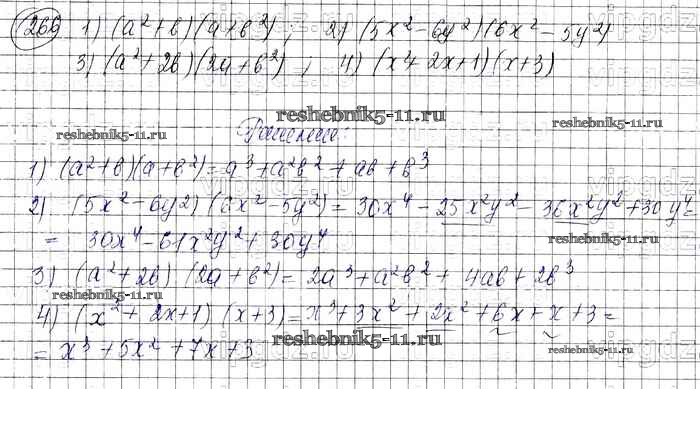 269 1) (a²+b)(a+b²) ; 2) (5x²-6y²)(6x²-5y²)
3) (a²+2b)(2a+b²) ; 4) (x²+2x+1)(x+3)
reshebnik5-11.ru
reshebnik5-11.ru
Решение:
reshebnik5-11.ru
1) (a²+b)(a+b²)=a³+a²b²+ab+b³
2) (5x²-6y²)(6x²-5y²)=30x⁴-25x²y²-36x²y²+30y⁴=
= 30x⁴-61x²y²+30y⁴
reshebnik5-11.ru
3) (a²+2b)(2a+b²)=2a³+a²b²+4ab+2b³
reshebnik5-11.ru
4) (x²+2x+1)(x+3)=x³+3x²+2x²+6x+x+3=
reshebnik5-11.ru
= x³+5x²+7x+3
reshebnik5-11.ru
vipgdz